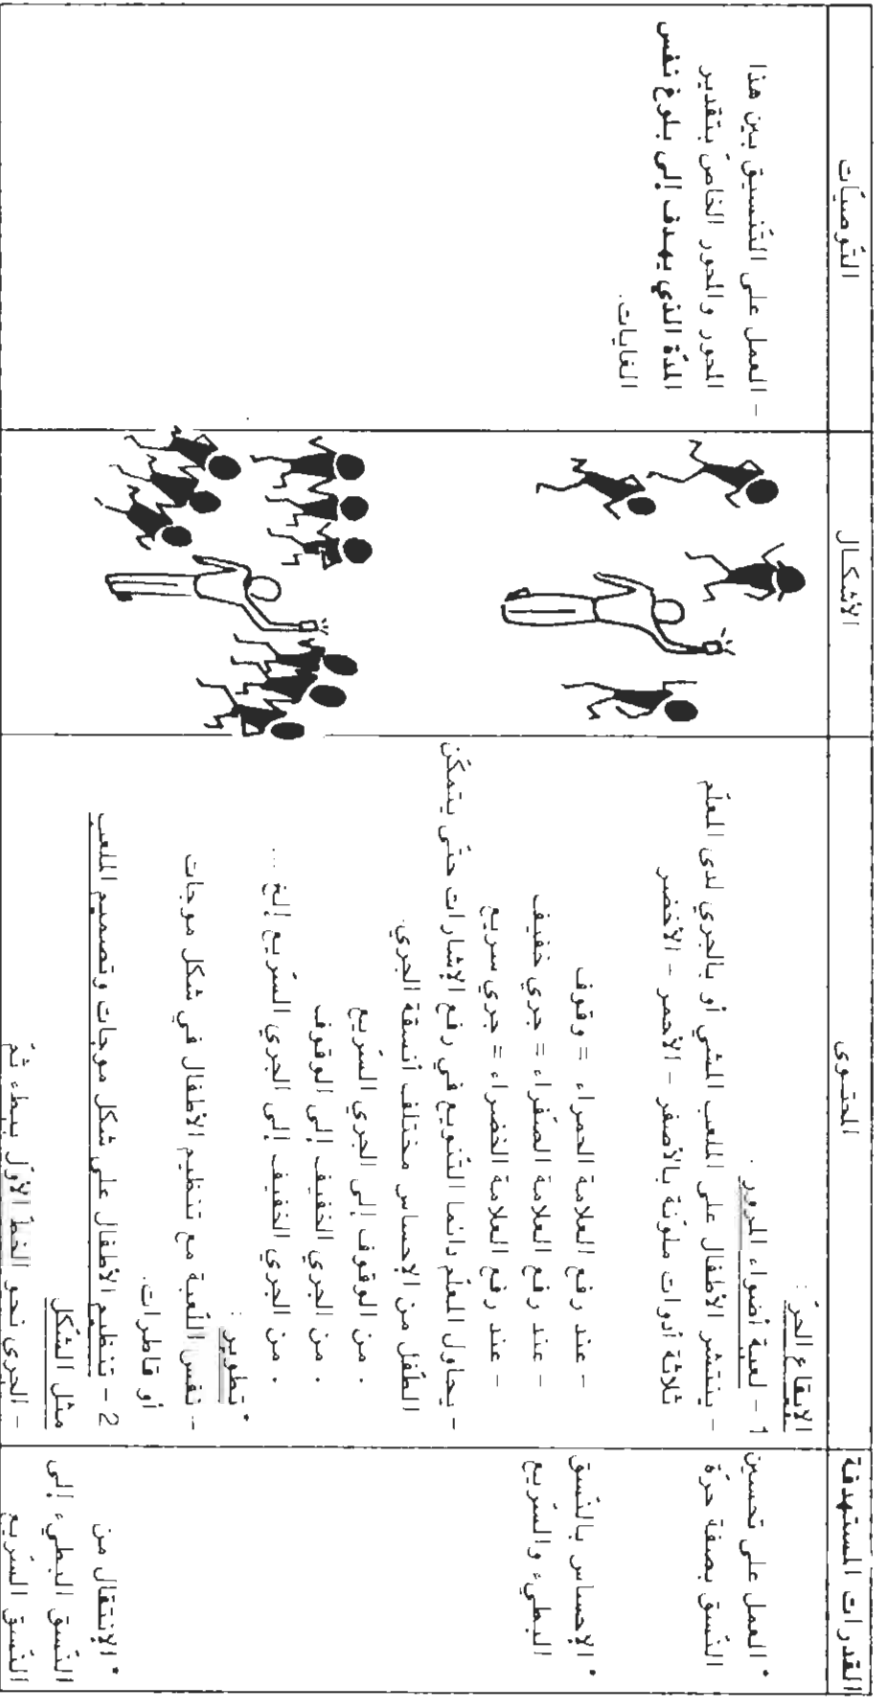 القدرات المستهدفة
* العمل على تحسين
النّسق بصفة حرّة
* الإحساس بالنّسق
البطيء والسّريع
* الإنتقال من
النّسق البطيء إلى
النّسق السّريع
المحتوى
الإيقاع الحرّ :
1 - لعبة أضواء المرور .
- ينتشر الأطفال على الملعب المشي أو بالجري لدى المعلّم
ثلاثة أدوات ملوّنة بالأصفر - الأحمر - الأخضر
- عند رفع العلامة الحمراء = وقوف
- عند رفع العلامة الصّفراء = جري خفيف
- عند رفع العلامة الخضراء = جري سريع
- يحاول المعلّم دائما التّنويع في رفع الإشارات حتّى يتمكّن
الطّفل من الإحساس مختلف أنسقة الجري.
. من الوقوف إلى الجري السّريع
. من الجري الخفيف إلى الوقوف
. من الجري الخفيف إلى الجري السّريع إلخ ...
* تطوير :
- نفس اللّعبة مع تنظيم الأطفال في شكل موجات
أو قاطرات.
2 - تنظيم الأطفال على شكل موجات وتصميم الملعب
مثل الشّكل
- الجري نحو الخطّ الأوّل ببطء ثمّ
الأشكال
التّوصيّات
- العمل على التّنسيق بين هذا
المحور والمحور الخاصّ بتقدير
المدّة الذي يهدف إلى بلوغ نفس
الغايات.